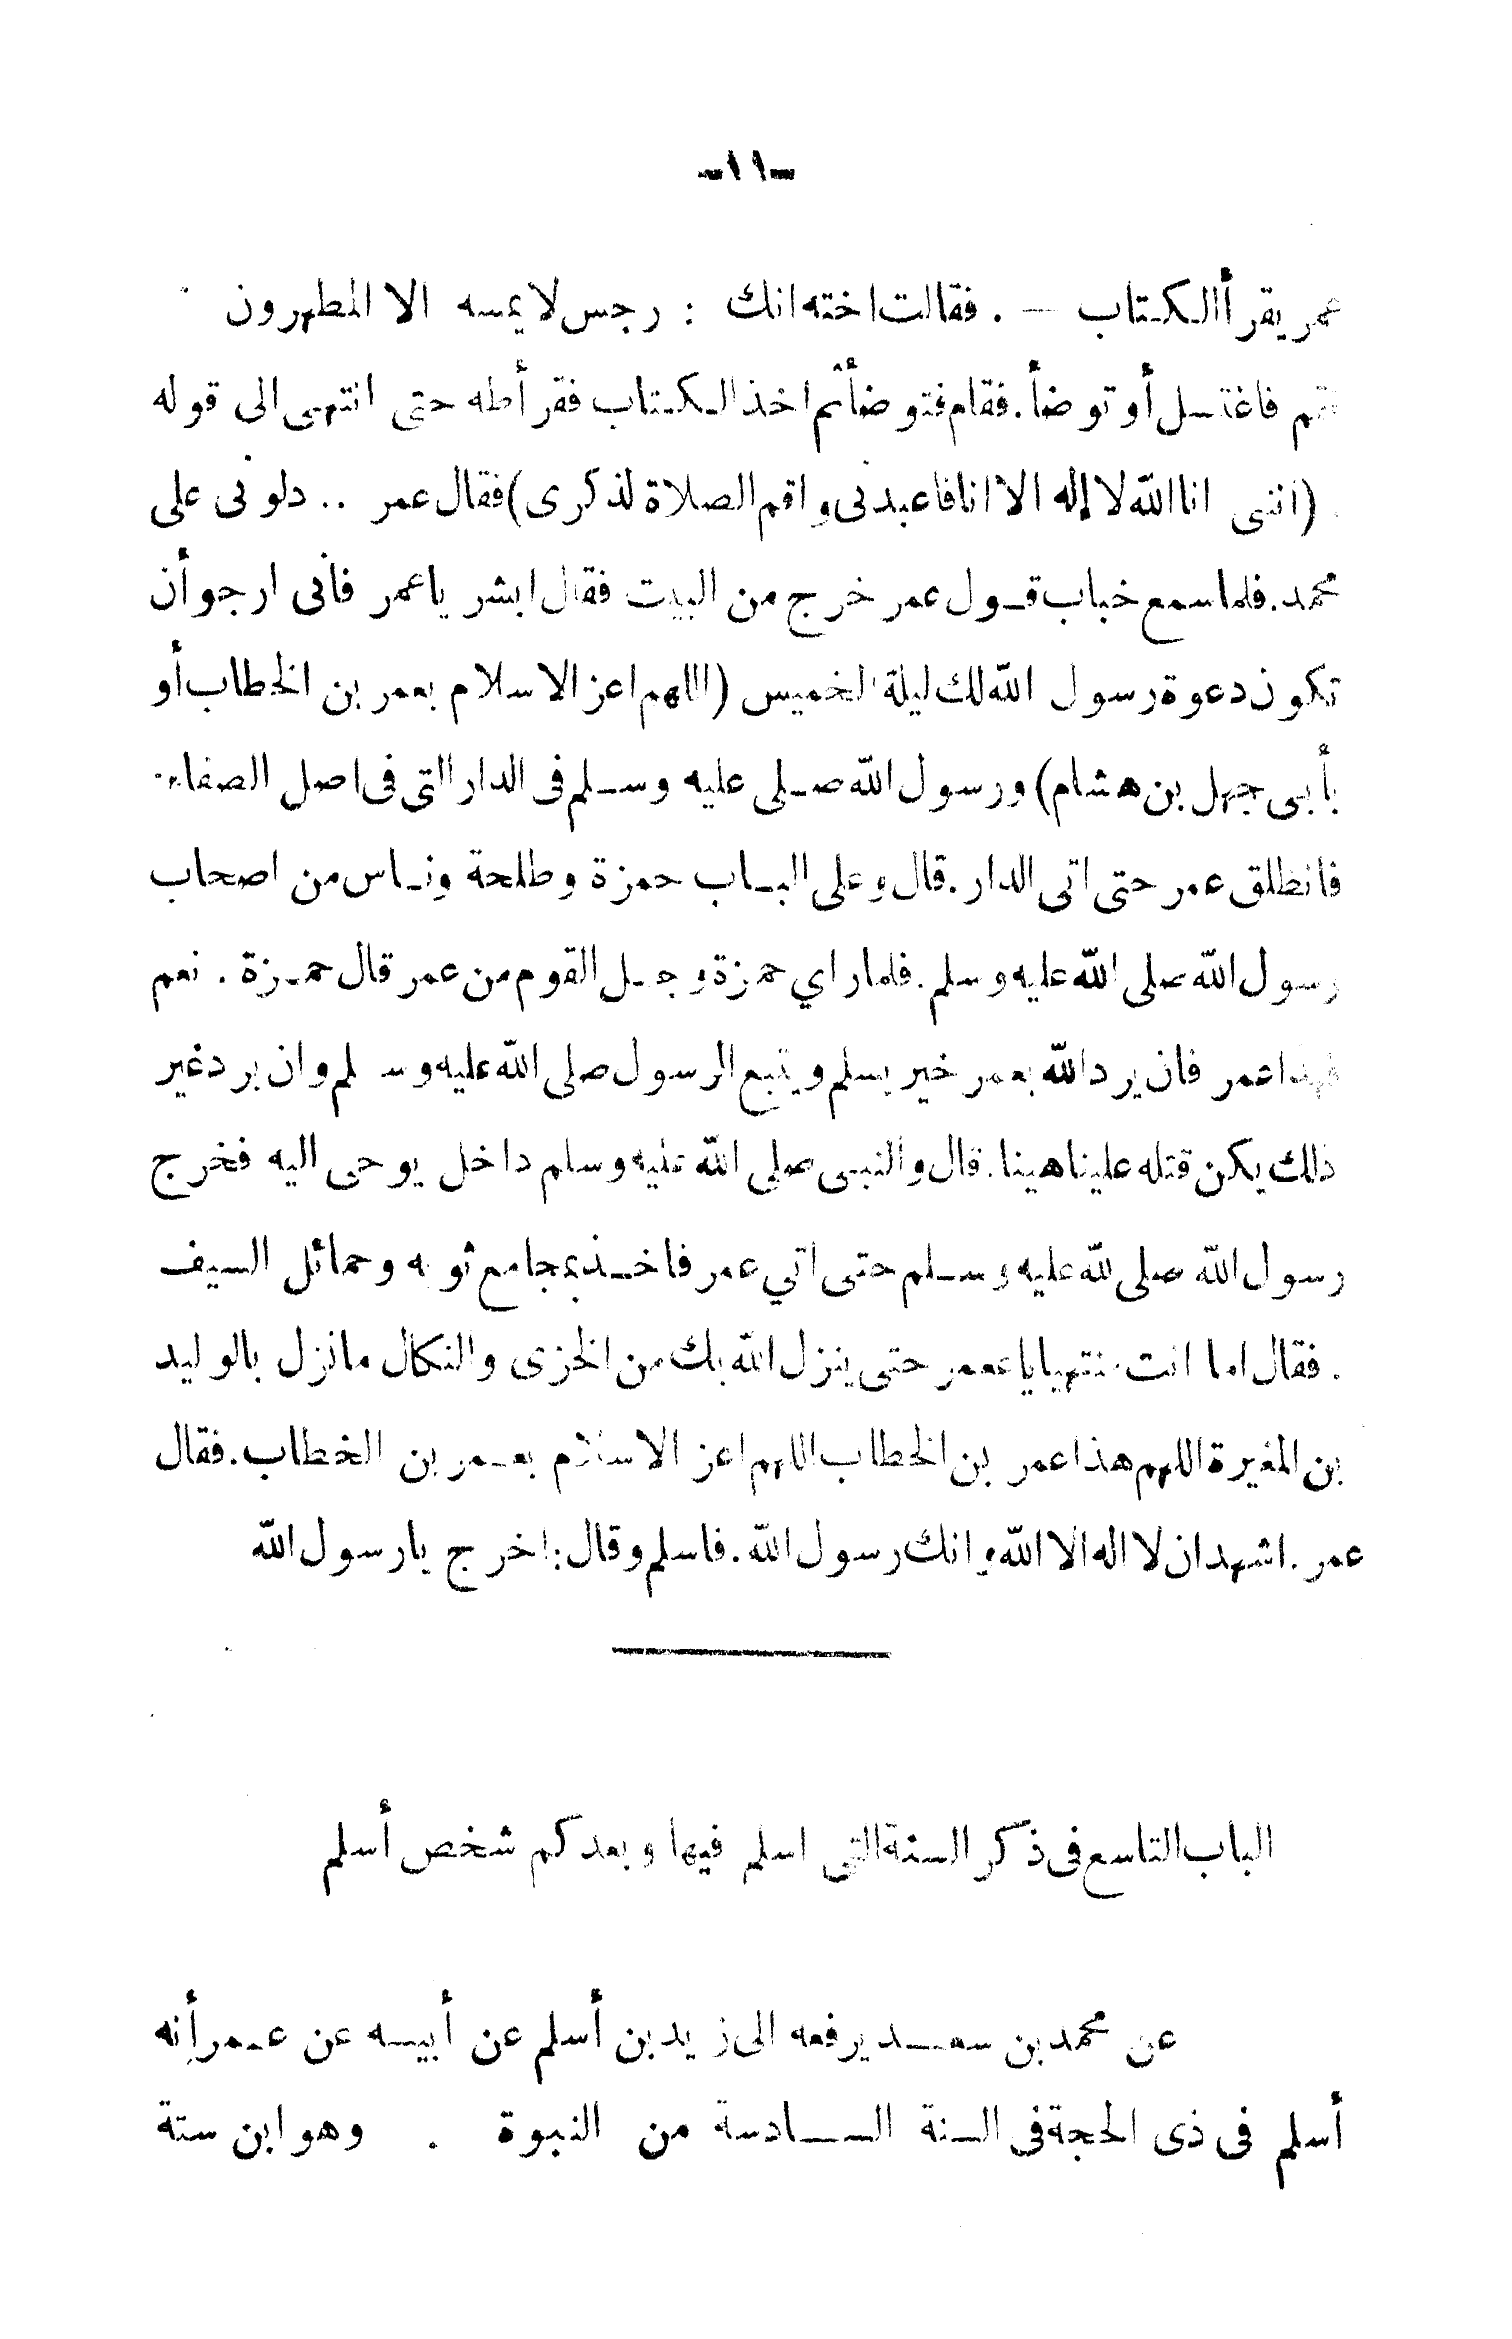 -١١-
عمر يقرأ الكتاب — . فقالت اخته انك : رجس لا يمسه الا المطهرون
فقم فاغتسل أو توضأ . فقام فتوضأ ثم اخذ الكتاب فقرأ طه حتى انتهى الى قوله
(انني انا الله لا إله الا انا فاعبدنى واقم الصلاة لذكرى) فقال عمر .. دلونى على
محمد . فلما سمع خباب قول عمر خرج من البيت فقال ابشر يا عمر فأنى ارجو أن
تكون دعوة رسول الله لك ليلة الخميس (اللهم اعز الاسلام بعمر بن الخطاب أو
بأبى جهل بن هشام) ورسول الله صلى عليه وسلم فى الدار التى فى اصل الصفا .
فانطلق عمر حتى اتى الدار . قال وعلى الباب حمزة وطلحة وناس من اصحاب
رسول الله صلى الله عليه وسلم . فلما راي حمزة وجل القوم من عمر قال حمزة . نعم
فهذا عمر فان يرد الله بعمر خير يسلم ويتبع الرسول صلى الله عليه وسلم وان يرد غير
ذلك يكن قتله علينا هينا . قال والنبى صلى الله عليه وسلم داخل يوحى اليه فخرج
رسول الله صلى لله عليه وسلم حتى اتي عمر فاخذ بمجامع ثوبه وحمائل السيف
. فقال اما انت منتهيا يا عممر حتى ينزل الله بك من الخزى والنكال ما نزل بالوليد
بن المغيرة اللهم هذا عمر بن الخطاب اللهم اعز الاسلام بعمر بن الخطاب . فقال
عمر . اشهد ان لا اله الا الله وانك رسول الله . فاسلم وقال : اخرج يا رسول الله
الباب التاسع فى ذكر السنة التى اسلم فيها وبعد كم شخص أسلم
عن محمد بن سعد يرفعه الى زيد بن أسلم عن أبيه عن عمر أنه
أسلم فى ذى الحجة فى السنة السادسة من النبوة . وهو ابن ستة